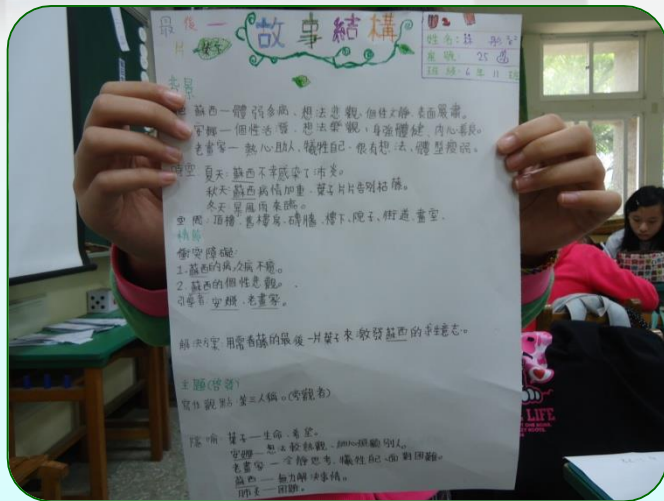 最後一片葉子
故事結構
姓名:
座號: 25
班級: 6年11班
背景
蘇西一體弱多病、想法悲觀,個性文靜、
安娜一個性活潑、想法樂觀,身強體健、內心善良。
老畫家一熱心助人、犧牲自己、很有想法、體型瘦弱。
時空 夏天:蘇西不幸感染了肺炎。
秋天:蘇西病情加重、葉子片片告別枯藤。
冬天:暴風雨來臨。
空間:頂樓、舊樓房、磚牆、樓下、院子、街道、畫室、
情節
衝突障礙:
1.蘇西的病,久病不癒。
2.蘇西的個性悲觀。
引導者:安娜、老畫家。
解決方案 用常春藤的最後一片葉子來啟發蘇西的求生意志。
主題(啓發)
寫作觀點:第三人稱。(旁觀者)
隱喻:葉子一生命、希望。
安娜一想法較熱觀、細心照顧別人。
老畫家一冷靜思考、犧牲自己、面對困難。
蘇西一無力解決事情。
肺炎一困難。
LIFE